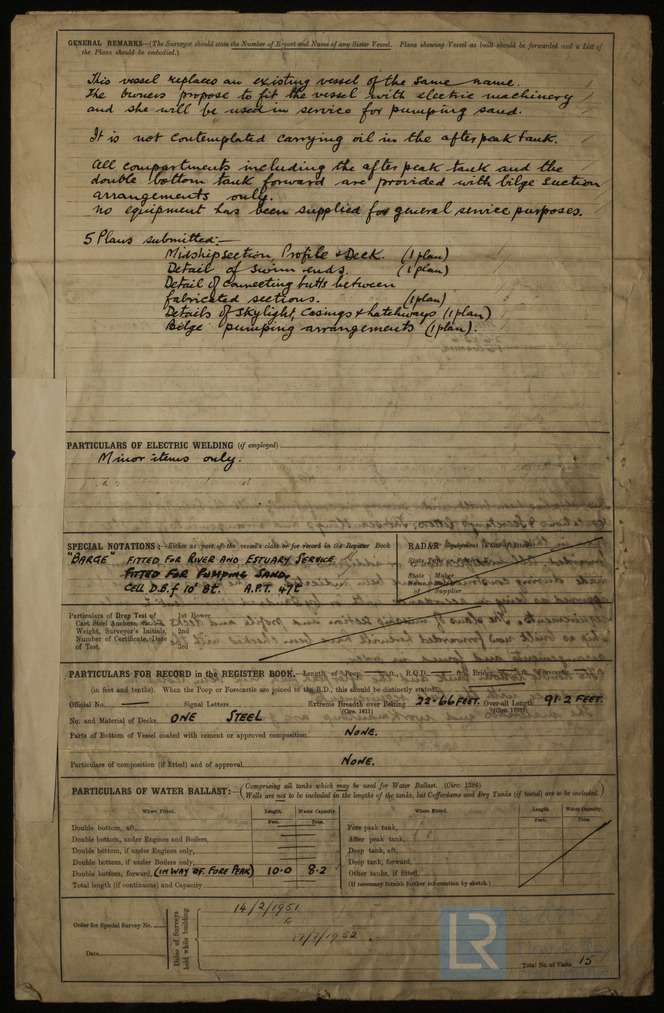 GENERAL REMARKS—(The Surveyor should state the Number of Report and Name of any Sister Vessel. Plans showing Vessel as built should be forwarded and a List of
the Plans should be embodied.)
This vessel replaces an existing vessel of the same name.
The owners propose to fit the vessel with electric machinery
and she will be used in service for pumping sand.
It is not contemplated carrying oil in the after peak tank.
All compartments including the after peak tank and the
double bottom tank forward are provided with bilge suction
arrangements only.
No equipment has been supplied for general service purposes.
5 Plans submitted:—
Midship section, Profile & Deck. (1 plan)
Detail of swim ends. (1 plan)
Detail of connecting butts between
fabricated sections. (1 plan)
Details of Skylight, Casings & hatchways (1 plan)
Bilge pumping arrangements (1 plan).
PARTICULARS OF ELECTRIC WELDING (if employed)
Minor items only.
SPECIAL NOTATIONS:—Either as part of the vessel's class or for record in the Register Book
"BARGE" FITTED FOR RIVER AND ESTUARY SERVICE
FITTED FOR PUMPING SAND.
CELL D.B.f 10' 8t. A.P.T. 47t
RADAR Equipment
State Maker
of Supplier
Particulars of Drop Test of 1st Bower
Cast Steel Anchors,
Weight, Surveyor's Initials, 2nd
Number of Certificate, Date
of Test. 3rd
PARTICULARS FOR RECORD in the REGISTER BOOK.—Length of Poop ft., R.Q.D. ft., Bridge ft., Forecastle ft.
(in feet and tenths). When the Poop or Forecastle are joined to the B.D., this should be distinctly stated
Official No. — Signal Letters Extreme Breadth over Belting 22.66 FEET. Over-all Length 91.2 FEET.
(Circ. 1611)
No. and Material of Decks. ONE STEEL
Parts of Bottom of Vessel coated with cement or approved composition. NONE.
Particulars of composition (if fitted) and of approval NONE.
PARTICULARS OF WATER BALLAST:—(Comprising all tanks which may be used for Water Ballast. (Circ. 1284)
Wells are not to be included in the lengths of the tanks, but Cofferdams and Dry Tanks (if tested) are to be included.)
Where Fitted. Length. Water Capacity. Where Fitted. Length. Water Capacity.
Feet. Tons. Feet. Tons.
Double bottom, aft, Fore peak tank,
Double bottom, under Engines and Boilers, After peak tank,
Double bottom, if under Engines only, Deep tank, aft,
Double bottom, if under Boilers only, Deep tank, forward,
Double bottom, forward, (IN WAY OF FORE PEAK) 10.0 8.2 Other tanks, if fitted,
Total length (if continuous) and Capacity (If necessary furnish further information by sketch.)
Order for Special Survey No.
Date
Dates of Surveys
held while building
14/2/1951
to
Total No. of Visits 15
LR